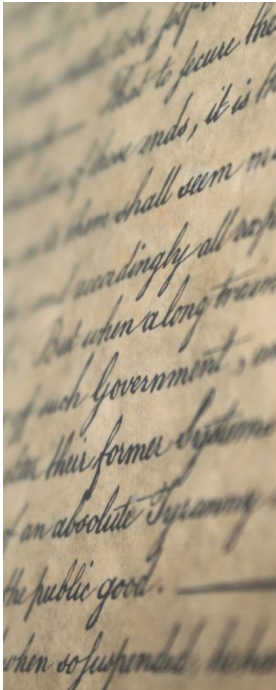 to be self-
That to secure the
of these ends, it is th
to them shall seem m
and accordingly all exp
But when a long train
of such Government, a
alter their former Systems
f an absolute Tyranny
the public good.
when so suspended,